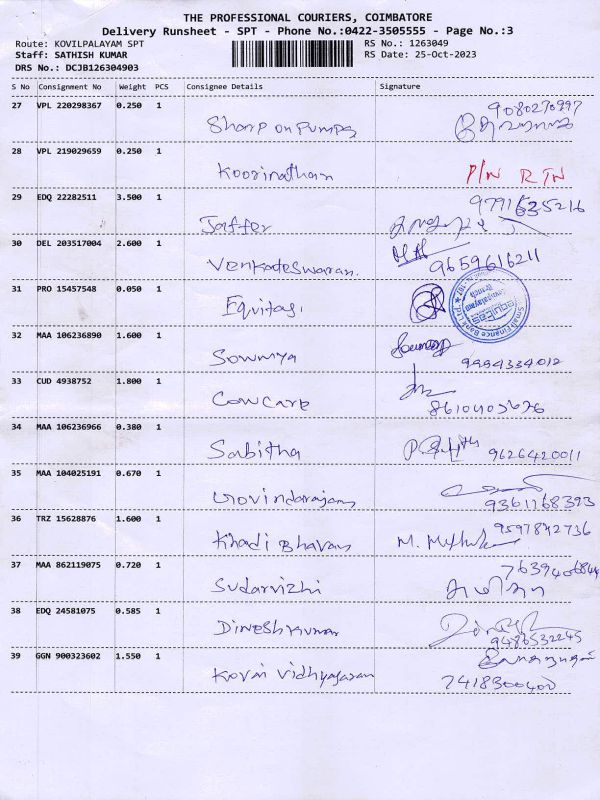 THE PROFESSIONAL COURIERS, COIMBATORE
Delivery Runsheet - SPT - Phone No.:0422-3505555 - Page No.:3
Route: KOVILPALAYAM SPT RS No.: 1263049
Staff: SATHISH KUMAR RS Date: 25-Oct-2023
DRS No.: DCJB126304903
S No Consignment No Weight PCS Consignee Details Signature
27 VPL 220298367 0.250 1 9080270997
Sharp on Pumps
28 VPL 219029659 0.250 1
Koorinathan P/N RTN
29 EDQ 22282511 3.500 1 9791635216
Jaffer
30 DEL 203517004 2.600 1
Venkadeswaran. 9659616211
31 PRO 15457548 0.050 1
Equitas, Equitas Small Finance Bank Ltd
32 MAA 106236890 1.600 1
Sowmya Sowmya 9994334012
33 CUD 4938752 1.800 1
Cow Care
34 MAA 106236966 0.380 1
Sabitha 9626420011
35 MAA 104025191 0.670 1
Govindarajan 9361168393
36 TRZ 15628876 1.600 1 9597842736
Khadi Bhavan
37 MAA 862119075 0.720 1
Sudarvizhi
38 EDQ 24581075 0.585 1
Dineshkumar 9486532245
39 GGN 900323602 1.550 1
Kovai Vidhyasaran 7418300400